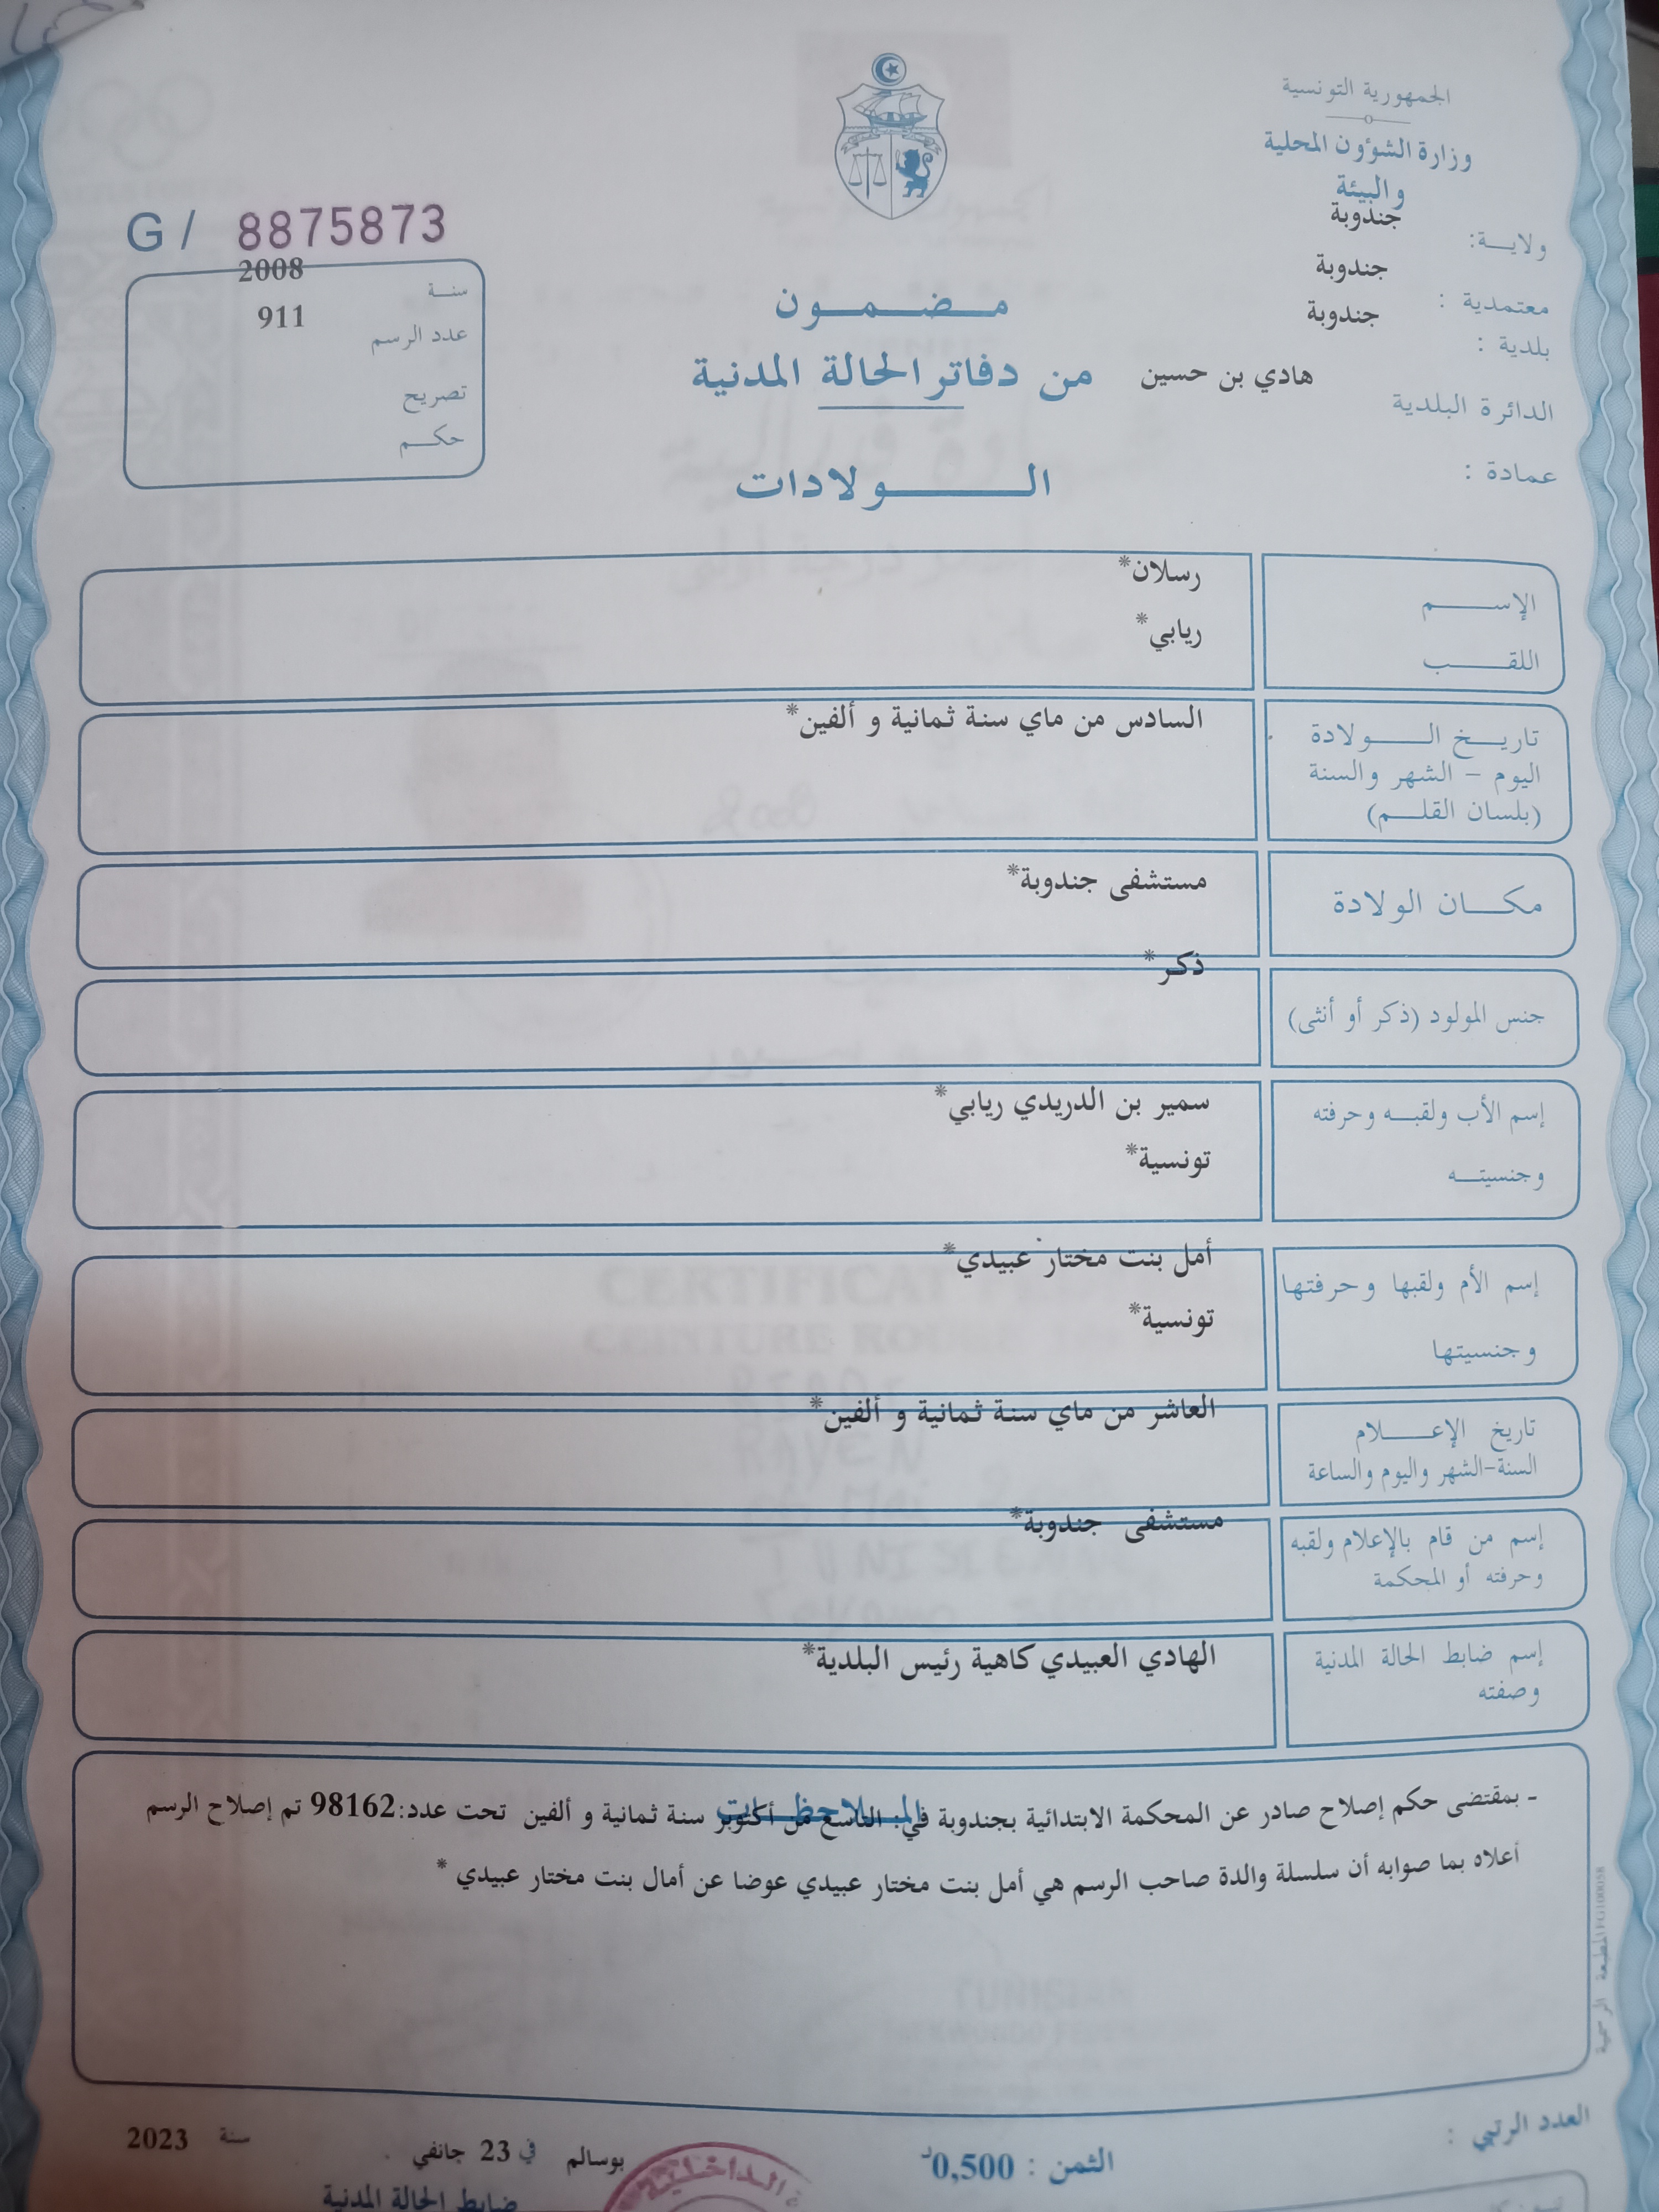 الجمهورية التونسية
وزارة الشؤون المحلية
والبيئة
ولايـــة: جندوبة
معتمدية : جندوبة
بلدية : جندوبة
الدائرة البلدية هادي بن حسين
عمادة :
G / 8875873
سنـــة 2008
عدد الرسم 911
تصريح
حكـــم
مـــضـــمـــون
من دفاتر الحالة المدنية
الـــــولادات
الإســـــم رسلان*
اللقـــــب ريابي*
تاريـــخ الـــــولادة السادس من ماي سنة ثمانية و ألفين*
اليوم - الشهر والسنة
(بلسان القلـــم)
مكـــان الولادة مستشفى جندوبة*
جنس المولود (ذكر أو أنثى) ذكر*
إسم الأب ولقبـــه وحرفته سمير بن الدريدي ريابي*
وجنسيتـــه تونسية*
إسم الأم ولقبها وحرفتها أمل بنت مختار عبيدي*
وجنسيتها تونسية*
تاريخ الإعـــــلام العاشر من ماي سنة ثمانية و ألفين*
السنة-الشهر واليوم والساعة
إسم من قام بالإعلام ولقبه مستشفى جندوبة*
وحرفته أو المحكمة
إسم ضابط الحالة المدنية الهادي العبيدي كاهية رئيس البلدية*
وصفته
المـــلاحظـــات
- بمقتضى حكم إصلاح صادر عن المحكمة الابتدائية بجندوبة في: التاسع من أكتوبر سنة ثمانية و ألفين تحت عدد:98162 تم إصلاح الرسم
أعلاه بما صوابه أن سلسلة والدة صاحب الرسم هي أمل بنت مختار عبيدي عوضا عن أمال بنت مختار عبيدي *
المطبعة الرسمية
العدد الرتبي :
الثمن : 0,500د
بوسالم في 23 جانفي سنة 2023
ضابط الحالة المدنية
الداخلية
CERTIFICAT